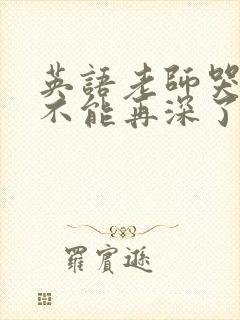 英語老師哭
不能再深了
羅賓遜